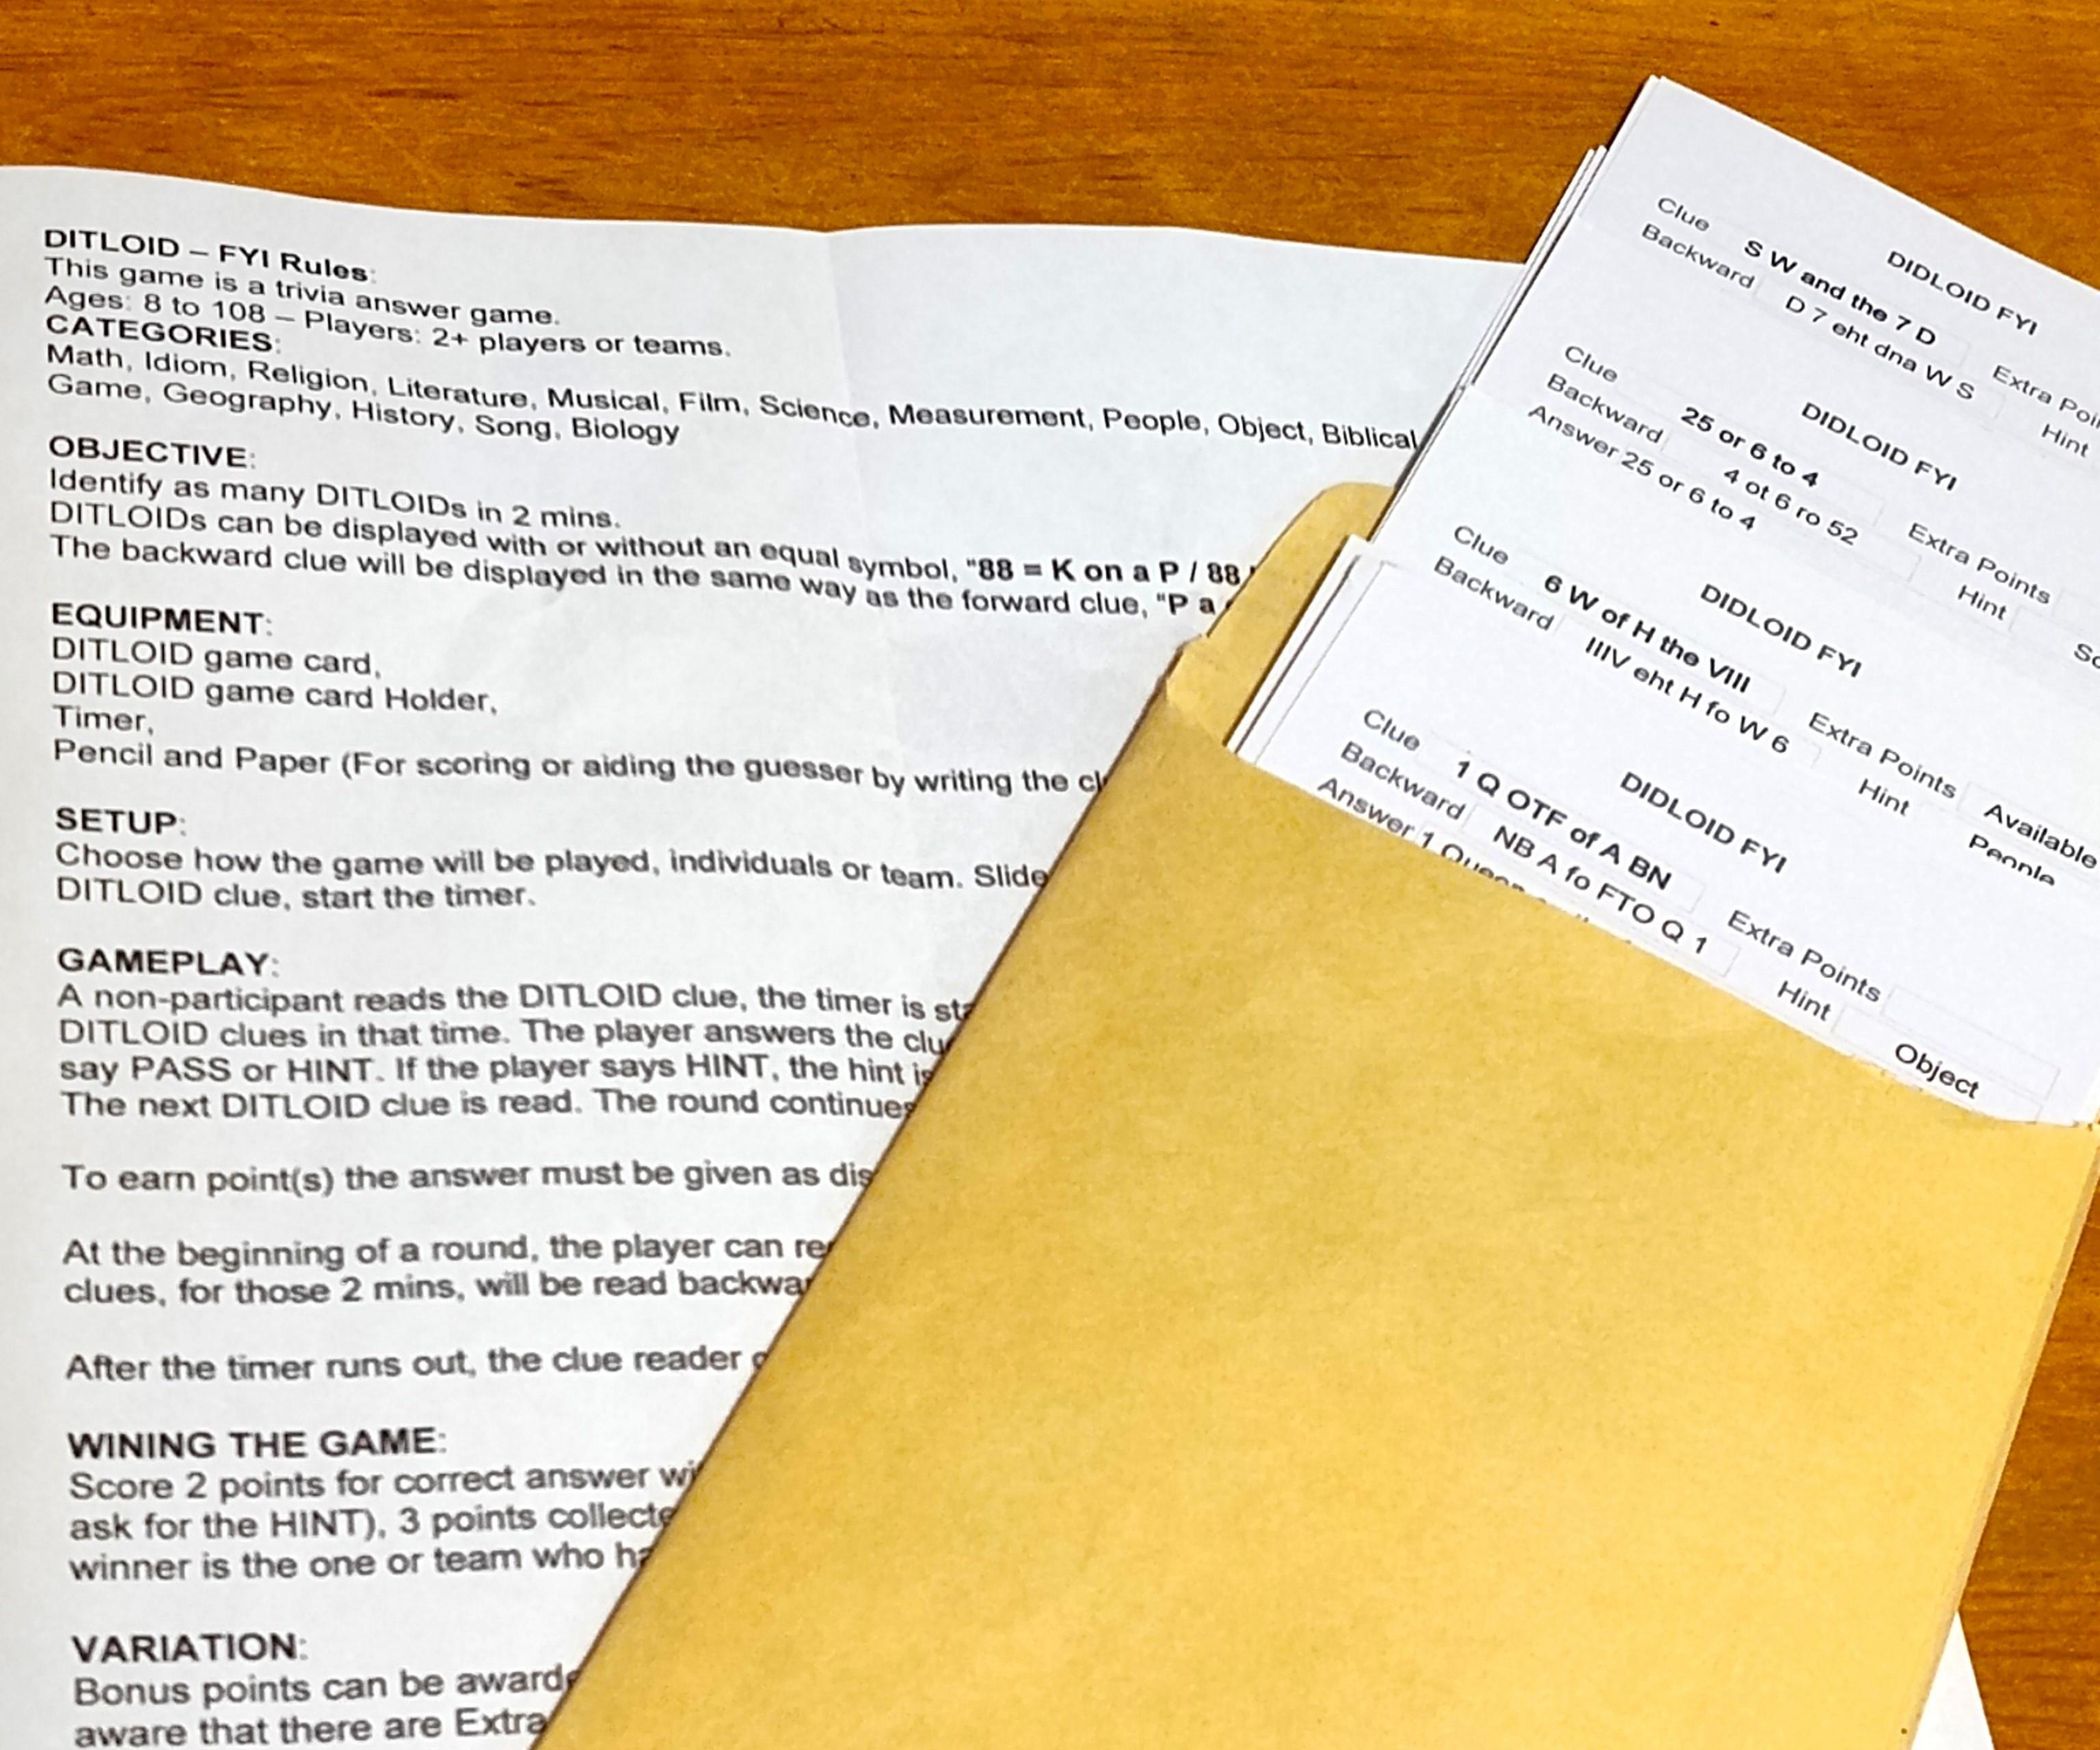 DITLOID – FYI Rules:
This game is a trivia answer game.
Ages: 8 to 108 – Players: 2+ players or teams.
CATEGORIES:
Math, Idiom, Religion, Literature, Musical, Film, Science, Measurement, People, Object, Biblical,
Game, Geography, History, Song, Biology
OBJECTIVE:
Identify as many DITLOIDs in 2 mins.
DITLOIDs can be displayed with or without an equal symbol, "88 = K on a P / 88
The backward clue will be displayed in the same way as the forward clue, "P a
EQUIPMENT:
DITLOID game card,
DITLOID game card Holder,
Timer,
Pencil and Paper (For scoring or aiding the guesser by writing the
SETUP:
Choose how the game will be played, individuals or team. Slide
DITLOID clue, start the timer.
GAMEPLAY:
A non-participant reads the DITLOID clue, the timer is
DITLOID clues in that time. The player answers the
say PASS or HINT. If the player says HINT, the hint
The next DITLOID clue is read. The round continues
To earn point(s) the answer must be given as
At the beginning of a round, the player can
clues, for those 2 mins, will be read
After the timer runs out, the clue reader
WINING THE GAME:
Score 2 points for correct answer
ask for the HINT), 3 points
winner is the one or team who
VARIATION:
Bonus points can be
aware that there are Extra
DIDLOID FYI
Clue S W and the 7 D Extra
Backward D 7 eht dna W S Hint
DIDLOID FYI
Clue 25 or 6 to 4 Extra Points
Backward 4 ot 6 ro 52 Hint
Answer 25 or 6 to 4
DIDLOID FYI
Clue 6 W of H the VIII Extra Points Available
Backward IIIV eht H fo W 6 Hint People
DIDLOID FYI
Clue 1 Q OTF of A BN Extra Points
Backward NB A fo FTO Q 1 Hint Object
Answer 1 Queen